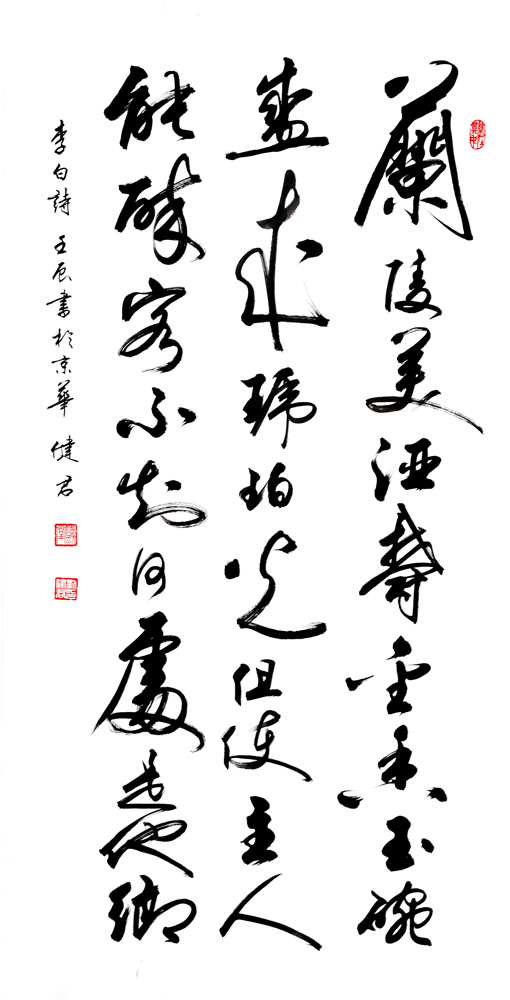 蘭陵美酒鬱金香玉碗
盛來琥珀光但使主人
能醉客不知何處是他鄉
李白詩 壬辰書於京華 健君